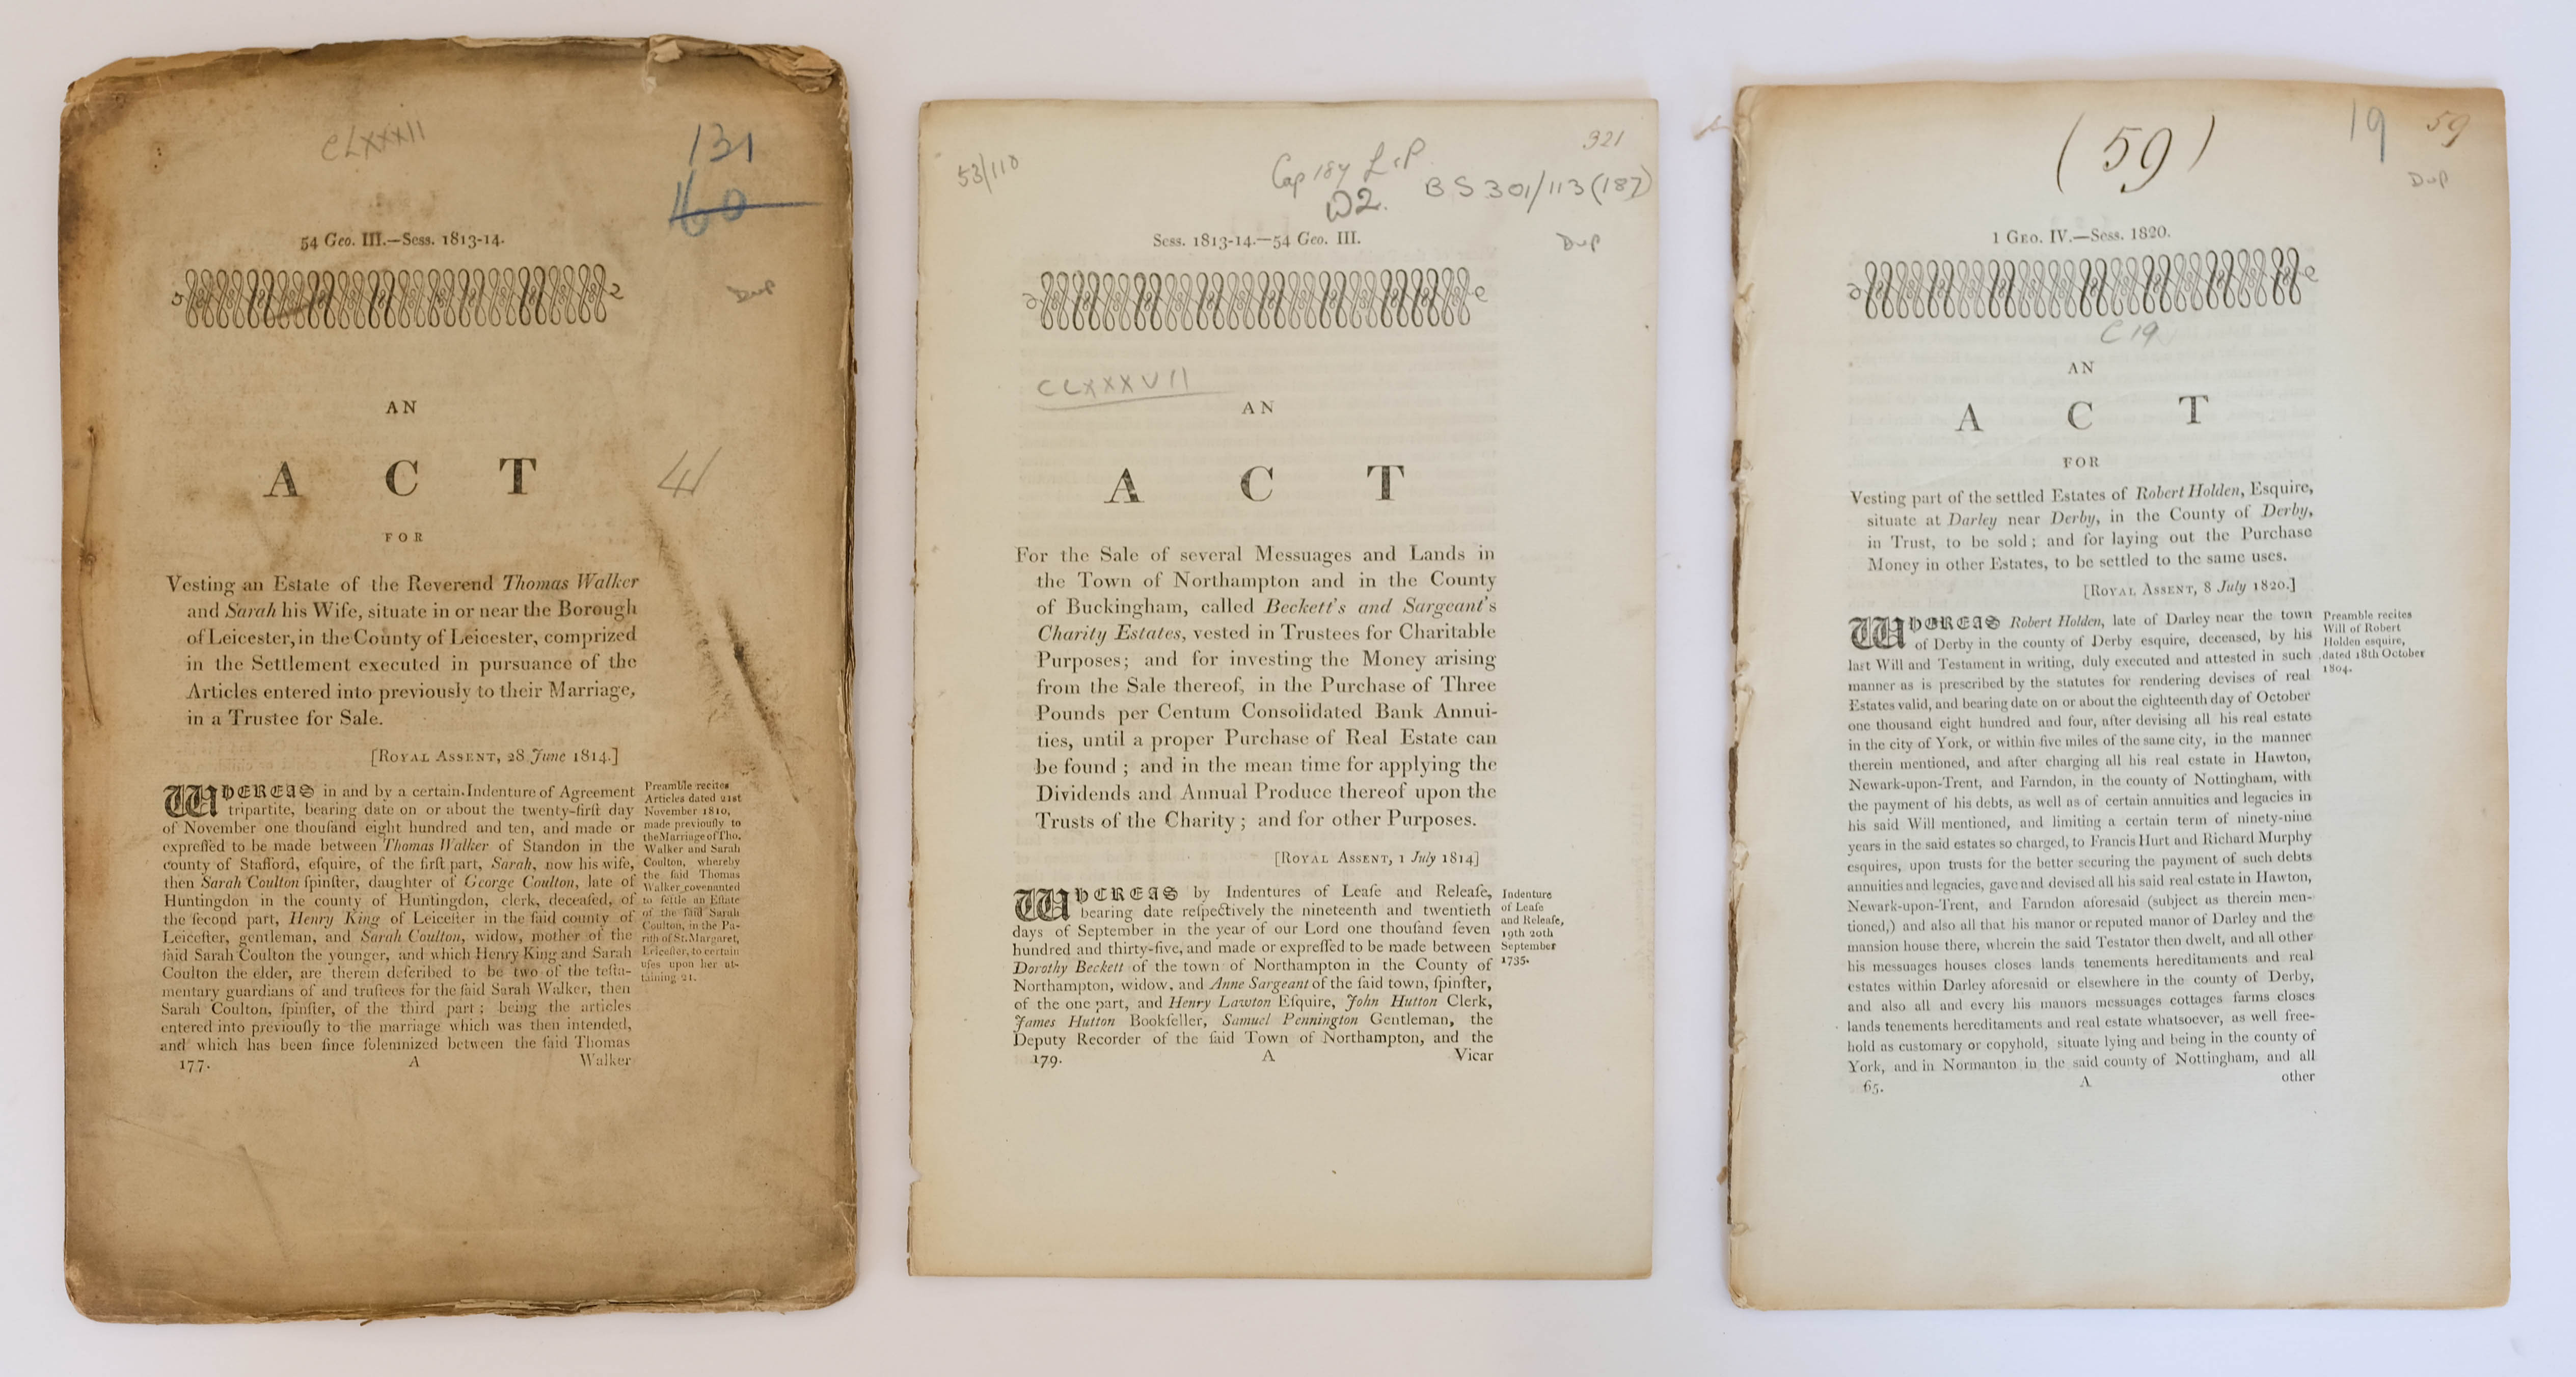 CLXXXII
131
160
54 Geo. III.—Sess. 1813-14.
Dup
AN
ACT
4/
FOR
Vesting an Estate of the Reverend Thomas Walker
and Sarah his Wife, situate in or near the Borough
of Leicester, in the County of Leicester, comprized
in the Settlement executed in pursuance of the
Articles entered into previously to their Marriage,
in a Trustee for Sale.
[ROYAL ASSENT, 28 June 1814.]
WHEREAS in and by a certain Indenture of Agreement
tripartite, bearing date on or about the twenty-firſt day
of November one thouſand eight hundred and ten, and made or
expreſſed to be made between Thomas Walker of Standon in the
county of Stafford, eſquire, of the firſt part, Sarah, now his wife,
then Sarah Coulton ſpinſter, daughter of George Coulton, late of
Huntingdon in the county of Huntingdon, clerk, deceaſed, of
the ſecond part, Henry King of Leiceſter in the ſaid county of
Leiceſter, gentleman, and Sarah Coulton, widow, mother of the
ſaid Sarah Coulton the younger, and which Henry King and Sarah
Coulton the elder, are therein deſcribed to be two of the teſta-
mentary guardians of and truſtees for the ſaid Sarah Walker, then
Sarah Coulton, ſpinſter, of the third part; being the articles
entered into previouſly to the marriage which was then intended,
and which has been ſince ſolemnized between the ſaid Thomas
177. A Walker
Preamble recites
Articles dated 21st
November 1810,
made previouſly to
the Marriage of Tho.
Walker and Sarah
Coulton, whereby
the ſaid Thomas
Walker covenanted
to ſettle an Eſtate
of the ſaid Sarah
Coulton, in the Pa-
riſh of St. Margaret,
Leiceſter, to certain
uſes upon her at-
taining 21.
53/110
321
Cap 187 L&P
W2. BS 301/113(187)
Sess. 1813-14.—54 Geo. III.
Dup
CLXXXVII
AN
ACT
For the Sale of several Messuages and Lands in
the Town of Northampton and in the County
of Buckingham, called Beckett's and Sargeant's
Charity Estates, vested in Trustees for Charitable
Purposes; and for investing the Money arising
from the Sale thereof, in the Purchase of Three
Pounds per Centum Consolidated Bank Annui-
ties, until a proper Purchase of Real Estate can
be found; and in the mean time for applying the
Dividends and Annual Produce thereof upon the
Trusts of the Charity; and for other Purposes.
[ROYAL ASSENT, 1 July 1814]
WHEREAS by Indentures of Leaſe and Releaſe,
bearing date reſpectively the nineteenth and twentieth
days of September in the year of our Lord one thouſand ſeven
hundred and thirty-five, and made or expreſſed to be made between
Dorothy Beckett of the town of Northampton in the County of
Northampton, widow, and Anne Sargeant of the ſaid town, ſpinſter,
of the one part, and Henry Lawton Eſquire, John Hutton Clerk,
James Hutton Bookſeller, Samuel Pennington Gentleman, the
Deputy Recorder of the ſaid Town of Northampton, and the
179. A Vicar
Indenture
of Leaſe
and Releaſe,
19th 20th
September
1735.
(59)
19 59
Dup
1 GEO. IV.—Sess. 1820.
C 19
AN
ACT
FOR
Vesting part of the settled Estates of Robert Holden, Esquire,
situate at Darley near Derby, in the County of Derby,
in Trust, to be sold; and for laying out the Purchase
Money in other Estates, to be settled to the same uses.
[ROYAL ASSENT, 8 July 1820.]
WHEREAS Robert Holden, late of Darley near the town
of Derby in the county of Derby esquire, deceased, by his
last Will and Testament in writing, duly executed and attested in such
manner as is prescribed by the statutes for rendering devises of real
Estates valid, and bearing date on or about the eighteenth day of October
one thousand eight hundred and four, after devising all his real estate
in the city of York, or within five miles of the same city, in the manner
therein mentioned, and after charging all his real estate in Hawton,
Newark-upon-Trent, and Farndon, in the county of Nottingham, with
the payment of his debts, as well as of certain annuities and legacies in
his said Will mentioned, and limiting a certain term of ninety-nine
years in the said estates so charged, to Francis Hurt and Richard Murphy
esquires, upon trusts for the better securing the payment of such debts
annuities and legacies, gave and devised all his said real estate in Hawton,
Newark-upon-Trent, and Farndon aforesaid (subject as therein men-
tioned,) and also all that his manor or reputed manor of Darley and the
mansion house there, wherein the said Testator then dwelt, and all other
his messuages houses closes lands tenements hereditaments and real
estates within Darley aforesaid or elsewhere in the county of Derby,
and also all and every his manors messuages cottages farms closes
lands tenements hereditaments and real estate whatsoever, as well free-
hold as customary or copyhold, situate lying and being in the county of
York, and in Normanton in the said county of Nottingham, and all
65. A other
Preamble recites
Will of Robert
Holden esquire,
dated 18th October
1804.